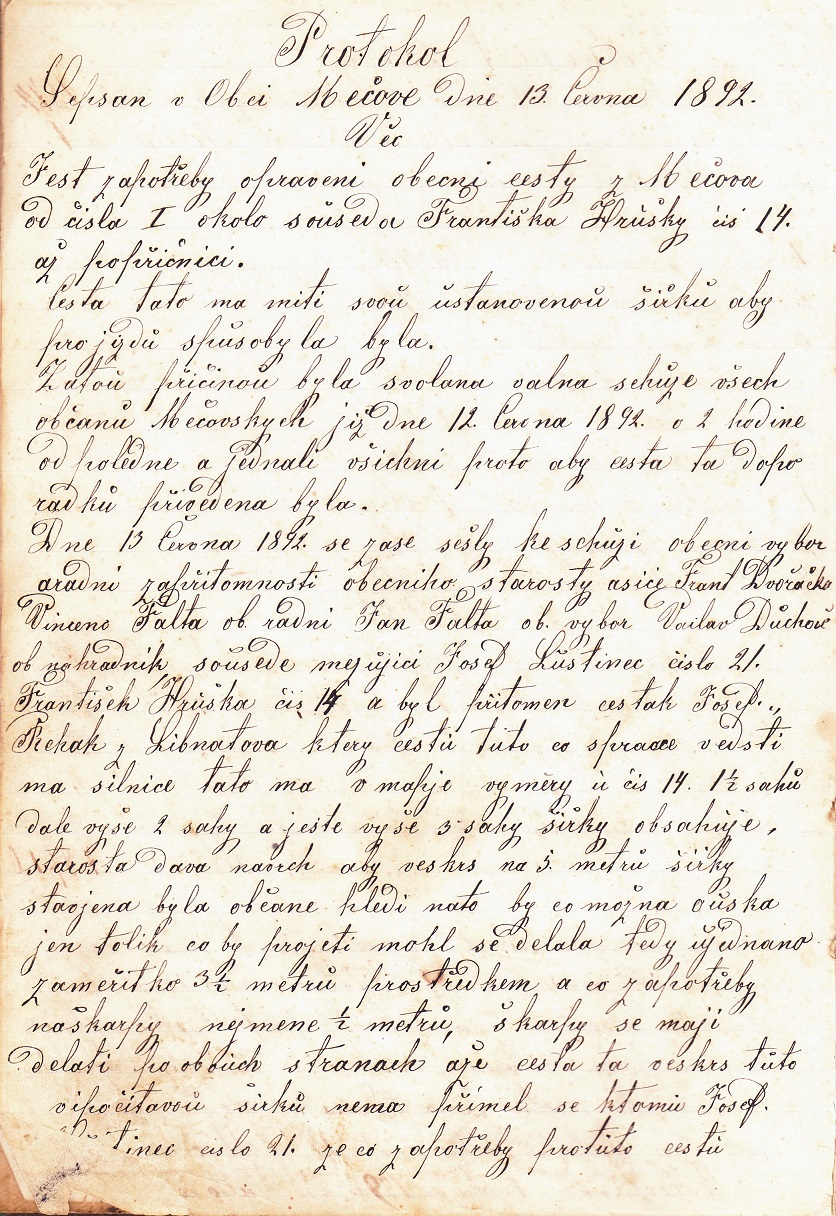 Protokol
Sepsan v Obci Mečove dne 13. Června 1892.
Věc
Jest zapotřeby opraveni obecni cesty z Mečova
od čisla I okolo souseda Františka Hrušky čis 14.
až popřičnici.
Cesta tato ma miti svou ustanovenou šiřku aby
projizdu spusobyla byla.
Zatou přičinou byla svolana valna schuze všech
občanu Mečovskych již dne 12. Června 1892. o 2 hodine
odpoledne a jednali všichni proto aby cesta ta dopo
radku přivedena byla.
Dne 13 Června 1892. se zase sešly ke schuzi obecni vybor
aradni zapřitomnosti obecniho starosty asice Frant Dvořačka
Vincenc Falta ob. radni Jan Falta ob. vybor Vaclav
ob nahradnik sousede mezujici Josef Lustinec čislo 21.
František Hruška čis 14 a byl přitomen cestak Josef.,
Řehak z Libnatova ktery cestu tuto co spravce vedsti
ma silnice tato ma v mapje vyměry u čis 14. 1½ sahu
dale vyše 2 sahy a ješte vyše 3 sahy šiřky obsahuje,
starosta dava navrch aby veskrs na 5. metru šiřky
stavjena byla občane hledi nato by co možna ouska
jen tolik co by projeti mohl se delala tedy ujednano
zaměřitko 3½ metru prostředkem a co zapotřeby
naškarpy nejmene ½ metru, škarpy se maji
delati po obouch stranach aže cesta ta veskrs tuto
vipočitavou širku nema přimel se ktomu Josef.
tinec čislo 21. ze co zapotřeby protuto cestu